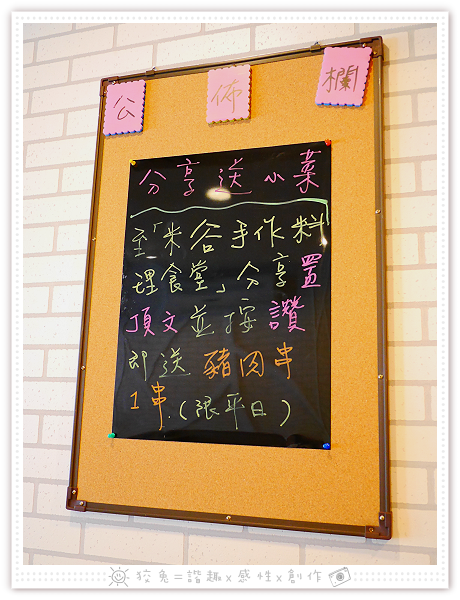 公佈欄
分享送小菜
至「米谷手作料
理食堂」分享置
頂文並按讚
即送豬肉串
1串.(限平日)
狡兔=諧趣x感性x創作